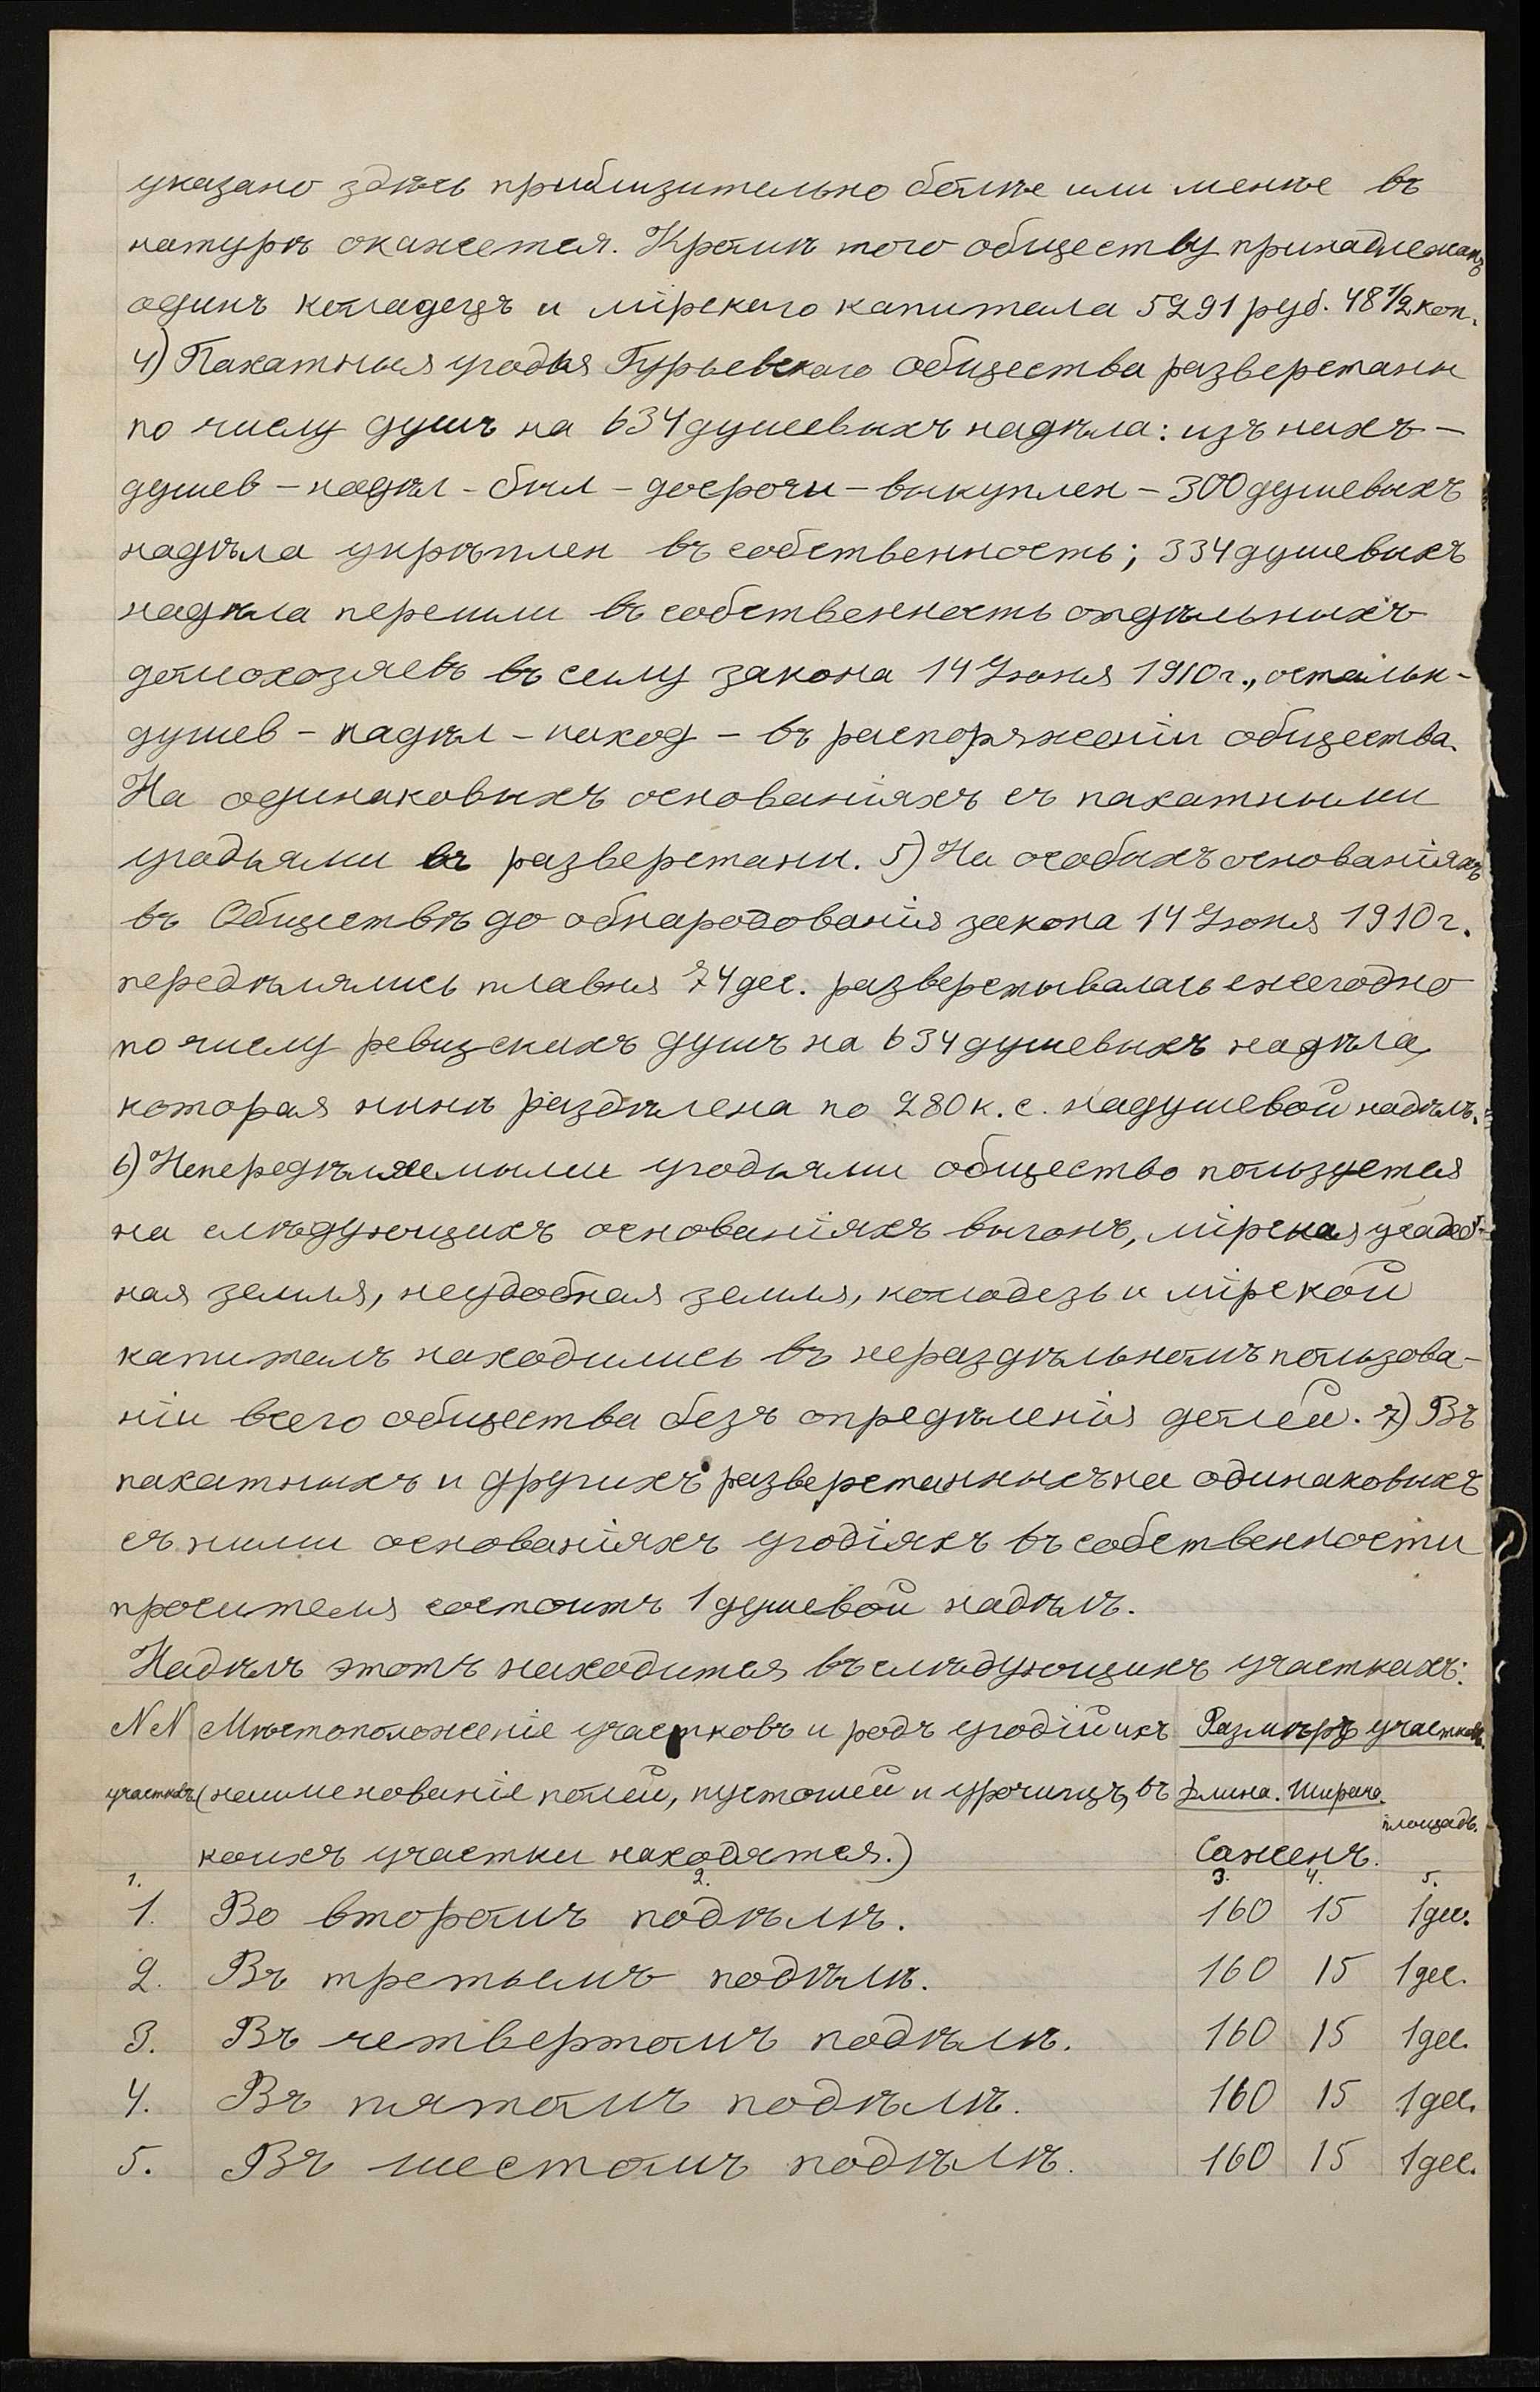 указано здѣсь приблизительно болѣе или менѣе въ
натурѣ окажется. Кромѣ того обществу принадлежатъ
одинъ коладецъ и мірскаго капитала 5291 руб. 48 1/2 коп.
4) Пахатныя угодья Гурьевскаго Общества разверстаны
по числу душъ на 634 душевыхъ надѣла: изъ нихъ —
душев – надѣл – был – досрочн – выкуплен – 300 душевыхъ
надѣла укрѣплен въ собственность; 334 душевыхъ
надѣла перешли въ собственность отдѣльныхъ
домохозяевъ въ силу закона 14 Іюня 1910 г., остальн –
душев – надѣл – наход – въ распоряженіи общества.
На одинаковыхъ основаніяхъ съ пахатными
угодьями въ разверстаны. 5) На особыхъ основаніяхъ
въ Обществѣ до обнародованія закона 14 Іюня 1910 г.
передѣлялись плавня 74 дес. разверстывалась ежегодно
по числу ревизскихъ душъ на 634 душевыхъ надѣла,
которая нынѣ раздѣлена по 280 к. с. на душевой надѣлъ.
6) Непередѣляемыми угодьями общество пользуется
на слѣдующихъ основаніяхъ выгонъ, мірская усадеб-
ная земля, неудобная земля, колодезь и мірской
капиталъ находились въ нераздѣльномъ пользова-
ніи всего общества безъ опредѣленія долей. 7) Въ
пахатныхъ и другихъ разверстанныхъ на одинаковыхъ
съ ними основаніяхъ угодіяхъ въ собственности
просителя состоитъ 1 душевой надѣлъ.
Надѣлъ этотъ находится въ слѣдующихъ участкахъ:
NN Мѣстоположеніе участковъ и родъ угодій ихъ Размѣръ участковъ.
участковъ (наименованіе полей, пустошей и урочищъ, въ Длина. Ширина.
площадь.
коихъ участки находятся.) Саженъ.
1. 2. 3. 4. 5.
1. Во второмъ подѣлѣ. 160 15 1 дес.
2. Въ третьемъ подѣлѣ. 160 15 1 дес.
3. Въ четвертомъ подѣлѣ. 160 15 1 дес.
4. Въ пятомъ подѣлѣ. 160 15 1 дес.
5. Въ шестомъ подѣлѣ. 160 15 1 дес.